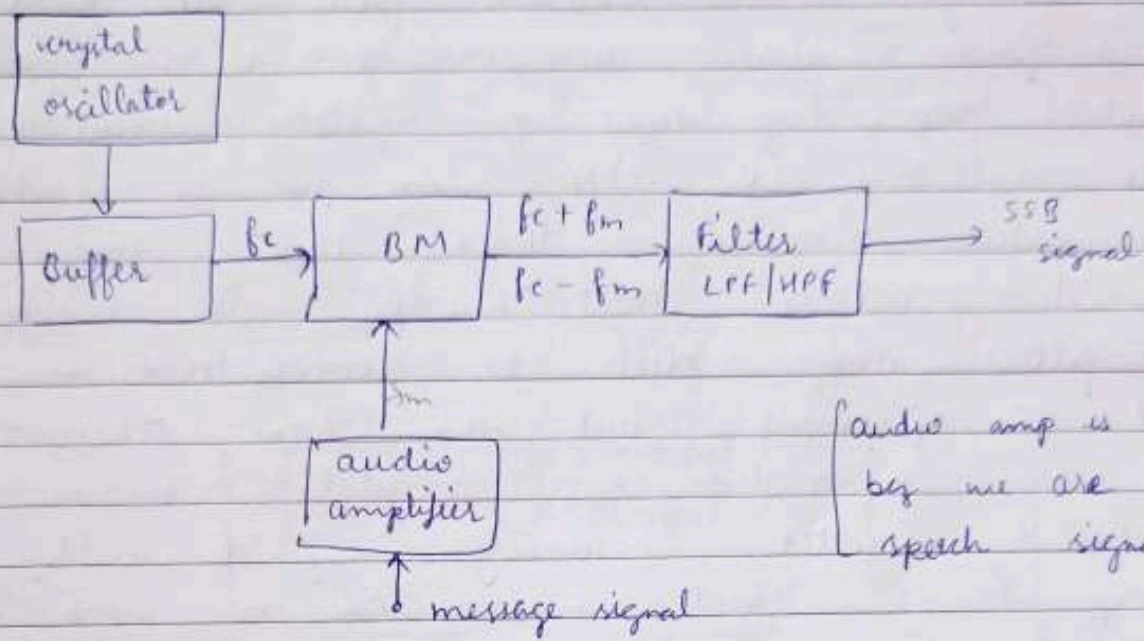 crystal
oscillator
Buffer
fc
BM
fc + fm
fc - fm
Filter
LPF/HPF
SSB
signal
fm
audio
amplifier
message signal
audio amp is
bcz we are
speech